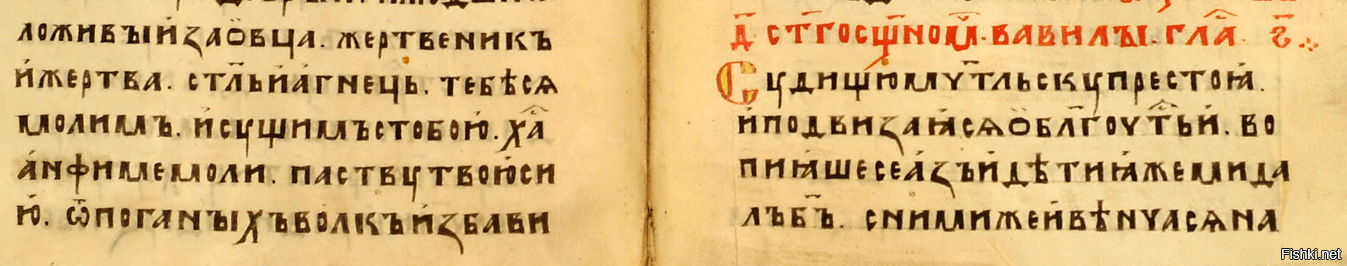 ложивыи҆заѻ҆вца. жертвеникъ
и҆жертва. ст҃льи҆а҆гнець. тебѣсѧ
молимъ. и҆сущимъстобою҆. ха҃
а҆нфимемоли. паствутвою҆си
ю҆. ѿпоганыхъволкъи҆збави
д҃ ст҃госщ҃ном҃. вавилы. гла҃ г҃
Судищюмч҃тльскупрестоꙗ҆.
и҆подвизаꙗ҆сѧѻ҆бл҃гочт҃ьи҆. во
пиꙗ҆шесеа҆зъи҆дѣтиꙗ҆жемида
лъб҃ъ. снимижеи҆вѣнчасѧна
Fishki.net